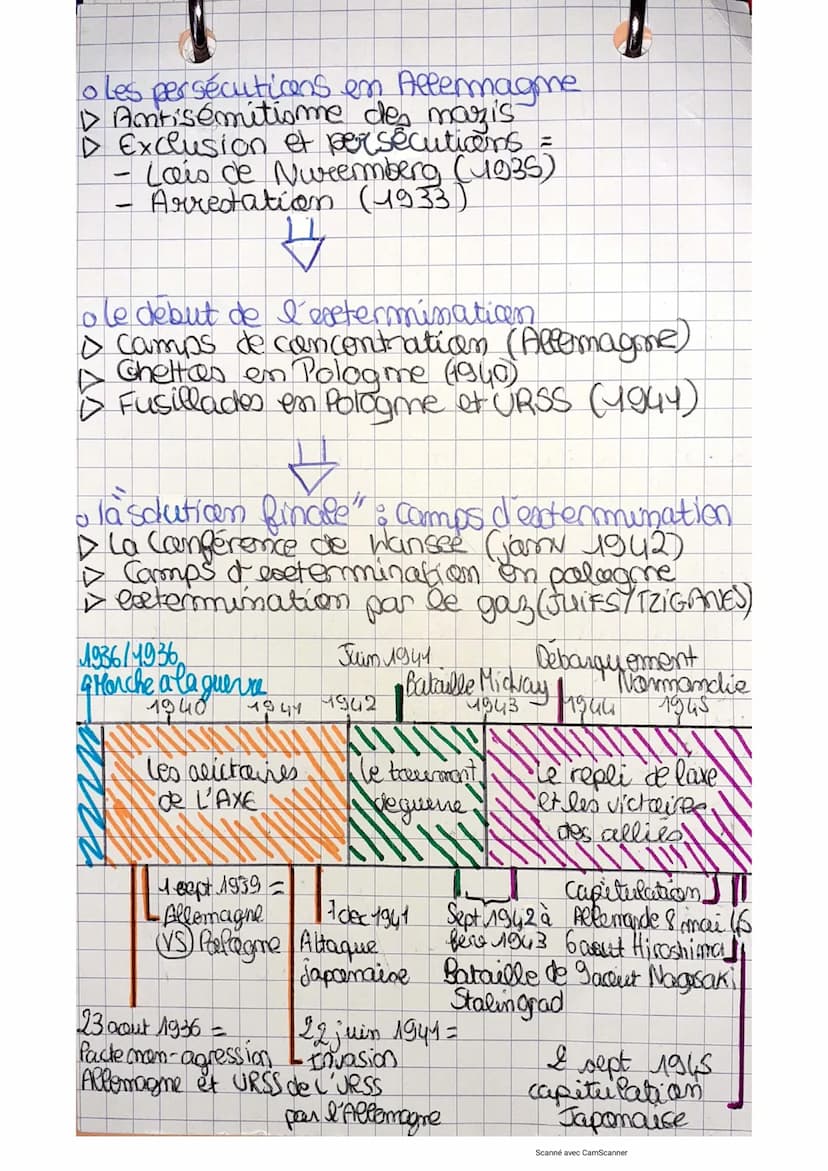 o les persécutions en Allemagne
▷ Antisémitisme des nazis
▷ Exclusion et persécutions =
- Lois de Nuremberg (1935)
- Arrestation (1933)
o le début de l'extermination
▷ Camps de concentration (Allemagne)
▷ Ghettos en Pologne (1940)
▷ Fusillades en Pologne et URSS (1941)
o la "solution finale" : camps d'extermination
▷ La Conférence de Wansee (janv 1942)
▷ Camps d'extermination en pologne
▷ extermination par le gaz (JUIFS/TZIGANES)
1936/1936
Marche a la guerre
Juin 1941
Bataille Midway
Débarquement
Normandie
1940 1941 1942 1943 1944 1945
les victoires
de L'AXE
le tournant
de guerre
Le repli de l'axe
et les victoires
des alliés
1 sept 1939 =
Allemagne
VS Pologne
7 dec 1941
Attaque
japonaise
Sept 1942 à
fevr 1943
Bataille de
Stalingrad
Capitulation
Allemande 8 mai 45
6 aout Hiroshima
9 aout Nagasaki
23 aout 1936 =
Pacte non-agression
Allemagne et URSS
22 juin 1941 =
Invasion
de L'URSS
par l'Allemagne
2 sept 1945
capitulation
Japonaise
Scanné avec CamScanner